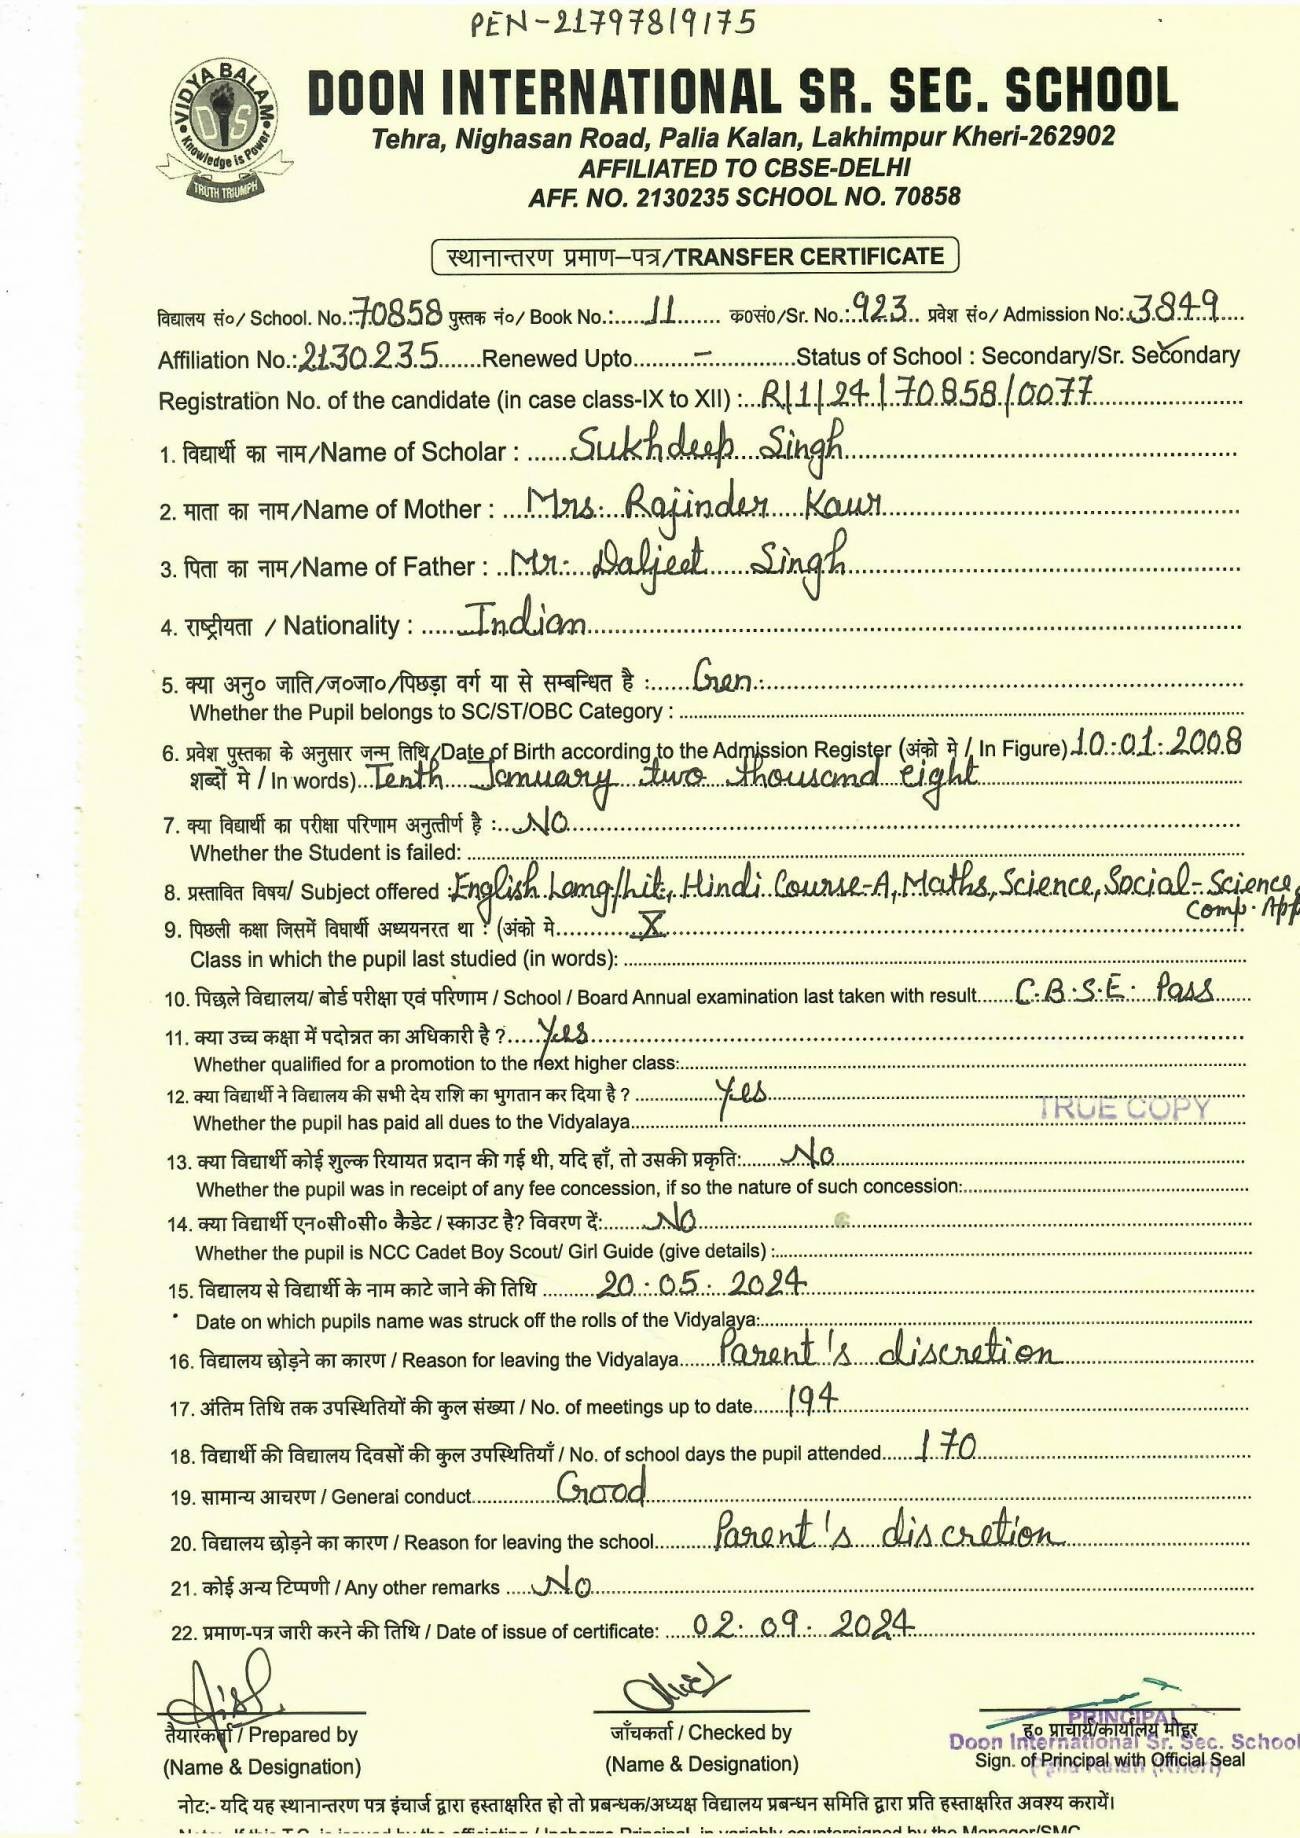 PEN-21797819175
VIDYA BALAM
DIS
Knowledge is Power
TRUTH TRIUMPH
DOON INTERNATIONAL SR. SEC. SCHOOL
Tehra, Nighasan Road, Palia Kalan, Lakhimpur Kheri-262902
AFFILIATED TO CBSE-DELHI
AFF. NO. 2130235 SCHOOL NO. 70858
स्थानान्तरण प्रमाण–पत्र/TRANSFER CERTIFICATE
विद्यालय सं०/ School. No.:70858 पुस्तक नं०/ Book No.:......11....... क०सं०/Sr. No.:923.. प्रवेश सं०/ Admission No:.3849....
Affiliation No.:2130235.......Renewed Upto..........–..............Status of School : Secondary/Sr. Secondary
Registration No. of the candidate (in case class-IX to XII) :...R/1/24/70858/0077......
1. विद्यार्थी का नाम/Name of Scholar : ......Sukhdeep Singh......
2. माता का नाम/Name of Mother : ...Mrs. Rajinder Kaur......
3. पिता का नाम/Name of Father : ..Mr. Daljeet Singh......
4. राष्ट्रीयता / Nationality : ......Indian......
5. क्या अनु० जाति/ज०जा०/पिछड़ा वर्ग या से सम्बन्धित है :......Gen.......
Whether the Pupil belongs to SC/ST/OBC Category : ......
6. प्रवेश पुस्तका के अनुसार जन्म तिथि/Date of Birth according to the Admission Register (अंको मे / In Figure) 10.01.2008
शब्दों मे / In words)...Tenth January two thousand eight......
7. क्या विद्यार्थी का परीक्षा परिणाम अनुत्तीर्ण है :...NO......
Whether the Student is failed: ......
8. प्रस्तावित विषय/ Subject offered :English Lang/Lit, Hindi Course-A, Maths, Science, Social-Science,
Comp. App
9. पिछली कक्षा जिसमें विघार्थी अध्ययनरत था : (अंको मे......X......
Class in which the pupil last studied (in words): ......
10. पिछले विद्यालय/ बोर्ड परीक्षा एवं परिणाम / School / Board Annual examination last taken with result......C.B.S.E. Pass......
11. क्या उच्च कक्षा में पदोन्नत का अधिकारी है ?.....Yes......
Whether qualified for a promotion to the next higher class:......
12. क्या विद्यार्थी ने विद्यालय की सभी देय राशि का भुगतान कर दिया है ? ......Yes......
TRUE COPY
Whether the pupil has paid all dues to the Vidyalaya......
13. क्या विद्यार्थी कोई शुल्क रियायत प्रदान की गई थी, यदि हाँ, तो उसकी प्रकृति:......No......
Whether the pupil was in receipt of any fee concession, if so the nature of such concession:......
14. क्या विद्यार्थी एन०सी०सी० कैडेट / स्काउट है? विवरण दें:......NO......
Whether the pupil is NCC Cadet Boy Scout/ Girl Guide (give details) :......
15. विद्यालय से विद्यार्थी के नाम काटे जाने की तिथि ......20.05.2024......
Date on which pupils name was struck off the rolls of the Vidyalaya:......
16. विद्यालय छोड़ने का कारण / Reason for leaving the Vidyalaya......Parent's discretion......
17. अंतिम तिथि तक उपस्थितियों की कुल संख्या / No. of meetings up to date......194......
18. विद्यार्थी की विद्यालय दिवसों की कुल उपस्थितियाँ / No. of school days the pupil attended......170......
19. सामान्य आचरण / General conduct......Good......
20. विद्यालय छोड़ने का कारण / Reason for leaving the school......Parent's discretion......
21. कोई अन्य टिप्पणी / Any other remarks ......No......
22. प्रमाण-पत्र जारी करने की तिथि / Date of issue of certificate: ......02.09.2024......
तैयारकर्ता / Prepared by
(Name & Designation)
जाँचकर्ता / Checked by
(Name & Designation)
PRINCIPAL
ह० प्राचार्य/कार्यालय मोहर
Doon International Sr. Sec. School
Sign. of Principal with Official Seal
Palia Kalan (Kheri)
नोट:- यदि यह स्थानान्तरण पत्र इंचार्ज द्वारा हस्ताक्षरित हो तो प्रबन्धक/अध्यक्ष विद्यालय प्रबन्धन समिति द्वारा प्रति हस्ताक्षरित अवश्य करायें।
Note:- If this T.C. is issued by the officiating / Incharge Principal, in variably countersigned by the Manager/SMC